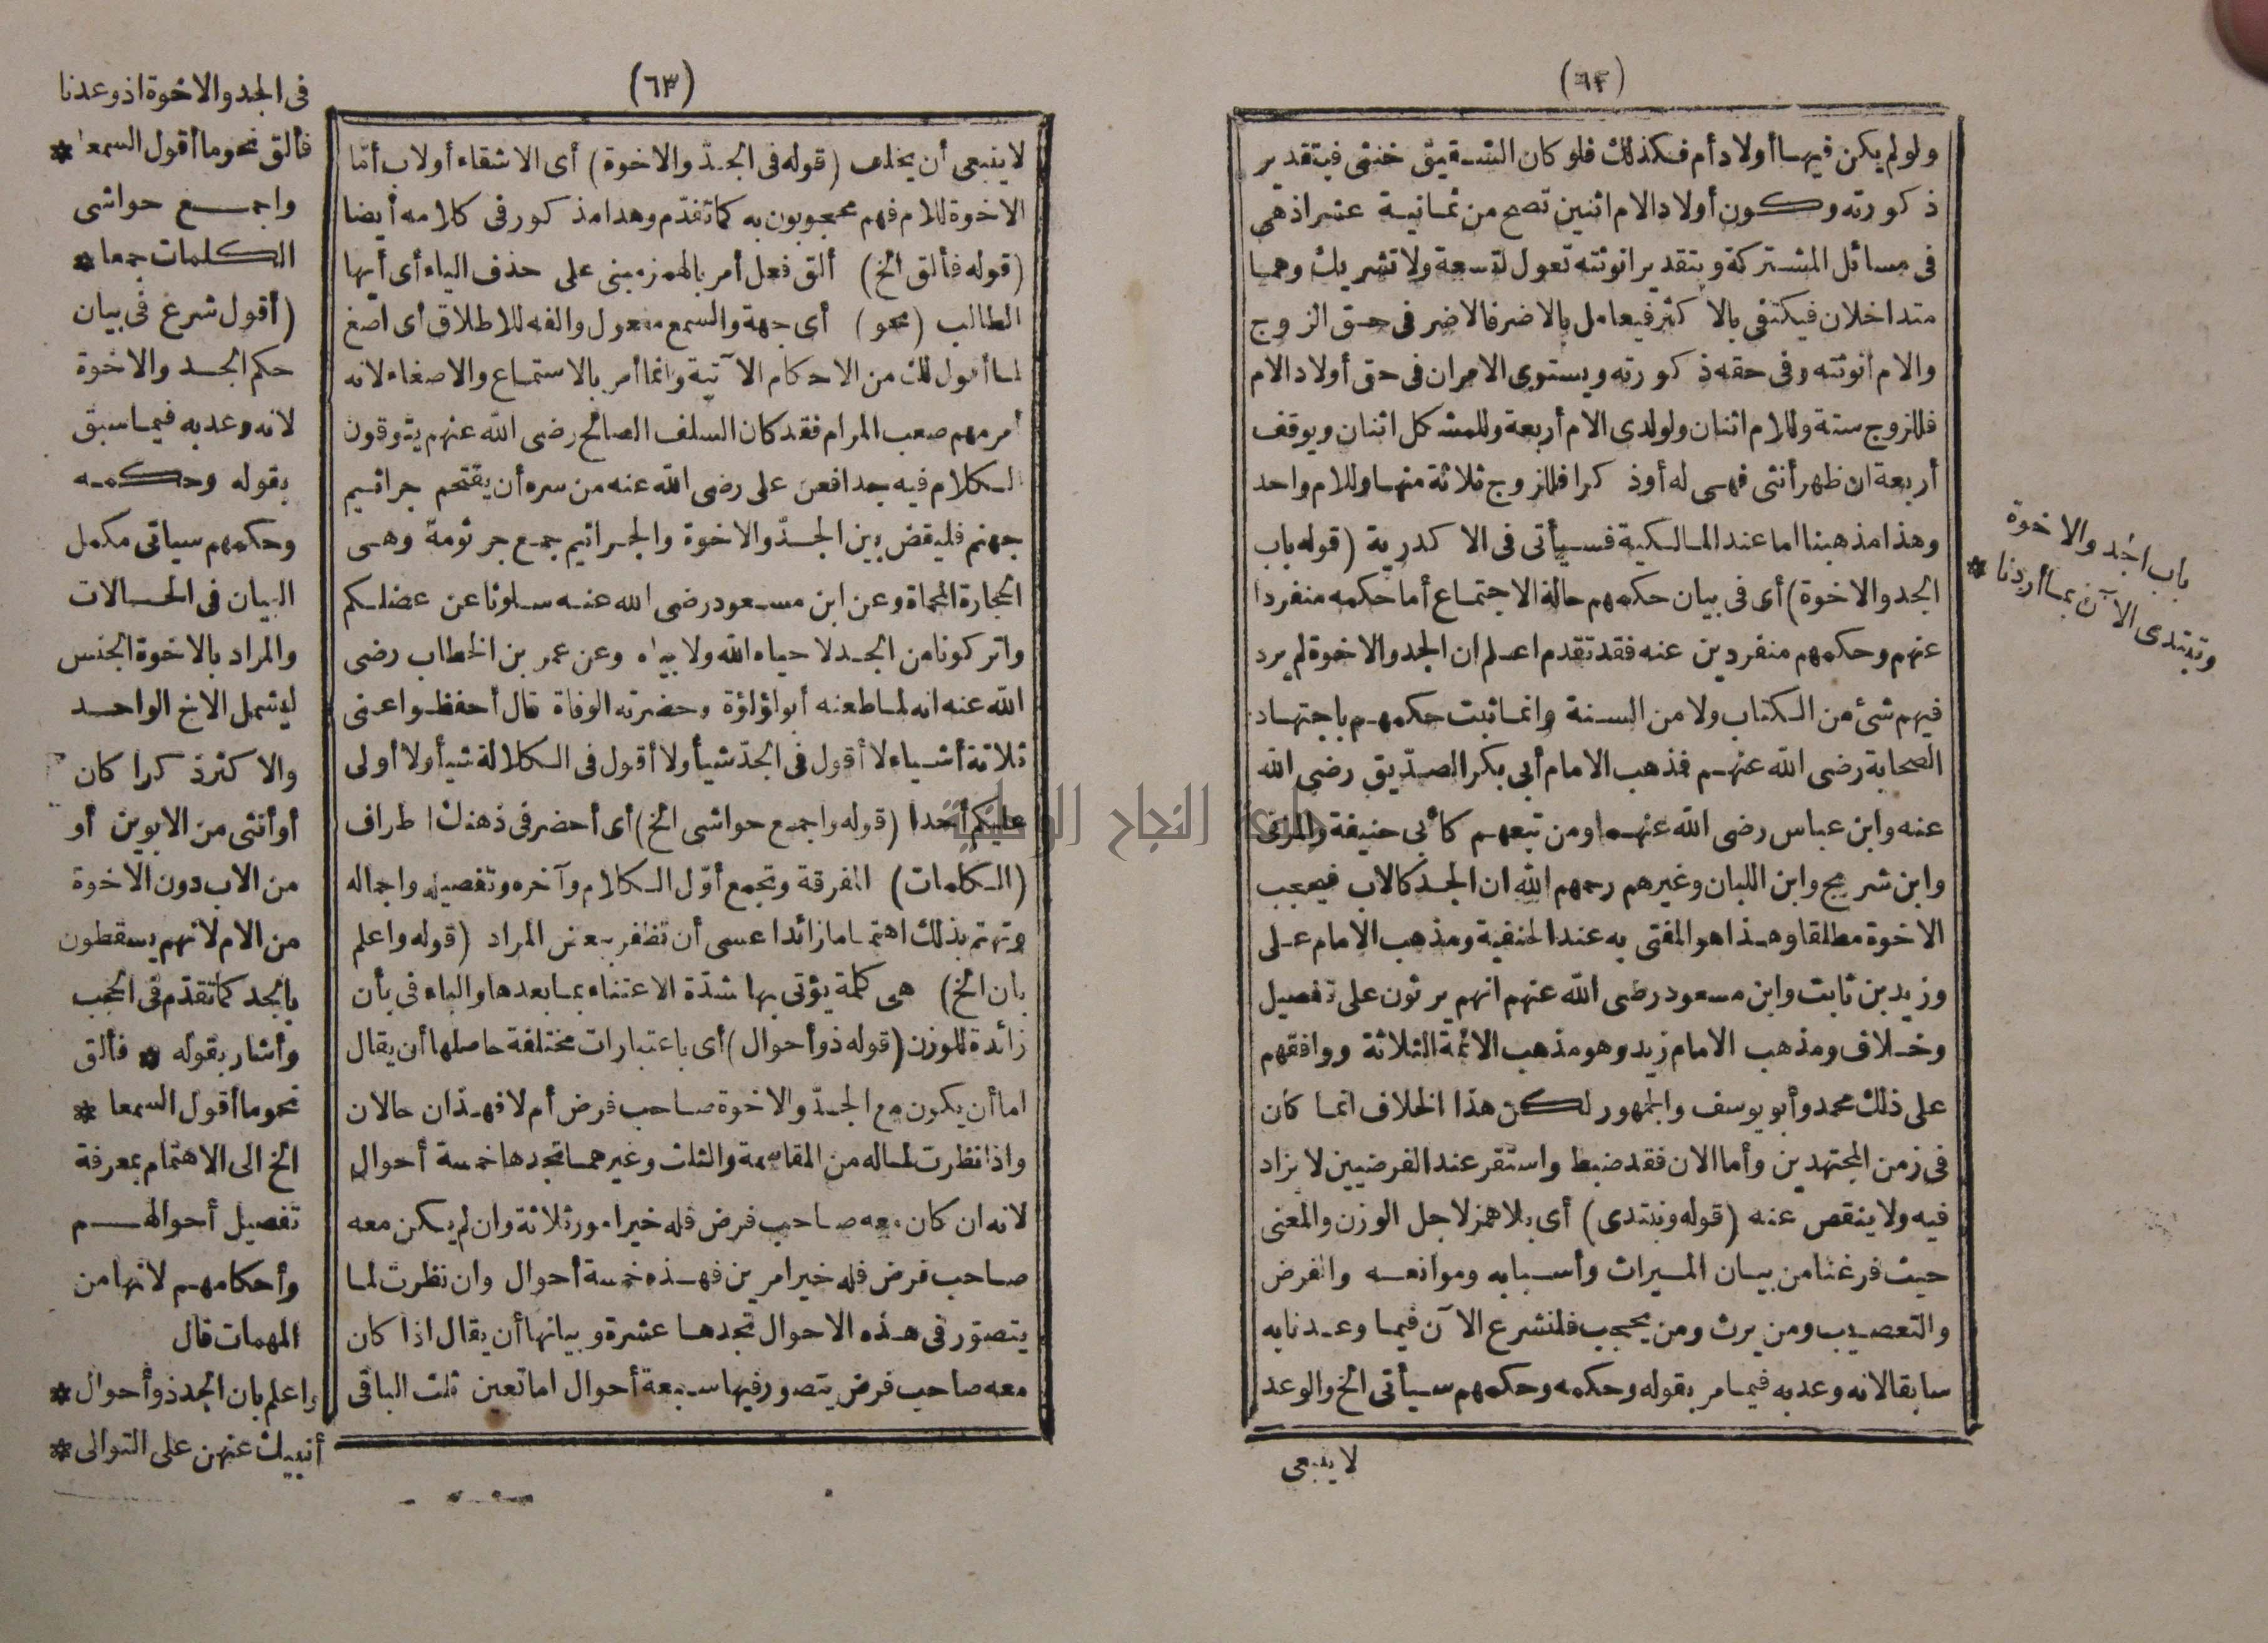 (٦٢)
ولو لم يكن فيها أولاد أم فكذلك فلو كان الشقيق خنثى فبتقدير
ذكورته وكون أولاد الام اثنين تصح من ثمانية عشر اذ هى
فى مسائل المشتركة وبتقدير انوثته تعول لتسعة ولا تشريك وهما
متداخلان فيكتفى بالاكثر فيعامل بالاضر فالاضر فى حق الزوج
والام أنوثته وفى حقه ذكورته ويستوى الامران فى حق أولاد الام
فللزوج ستة وللام اثنان ولولدى الام أربعة وللمشكل اثنان ويوقف
أربعة ان ظهر أنثى فهى له أو ذكرا فللزوج ثلاثة منها وللام واحد
وهذا مذهبنا اما عند المالكية فسيأتى فى الاكدرية (قوله باب
الجد والاخوة) أى فى بيان حكمهم حالة الاجتماع أما حكمه منفردا
عنهم وحكمهم منفردين عنه فقد تقدم اعلم ان الجد والاخوة لم يرد
فيهم شئ من الكتاب ولا من السنة وانما ثبت حكمهم باجتهاد
الصحابة رضى الله عنهم فذهب الامام أبى بكر الصدّيق رضى الله
عنه وابن عباس رضى الله عنهما ومن تبعهم كأبى حنيفة والمزنى
وابن شريج وابن اللبان وغيرهم رحمهم الله ان الجد كالاب فيحجب
الاخوة مطلقا وهذا هو المفتى به عند الحنفية ومذهب الامام على
وزيد بن ثابت وابن مسعود رضى الله عنهم انهم يرثون على تفصيل
وخلاف ومذهب الامام زيد وهو مذهب الائمة الثلاثة ووافقهم
على ذلك محمد وأبو يوسف والجمهور لكن هذا الخلاف انما كان
فى زمن المجتهدين وأما الان فقد ضبط واستقر عند الفرضيين لا يزاد
فيه ولا ينقص عنه (قوله ونبتدى) أى بلا همز لاجل الوزن والمعنى
حيث فرغنا من بيان الميراث وأسبابه وموانعه والفرض
والتعصيب ومن يرث ومن يحجب فلنشرع الآن فيما وعدنا به
سابقا لانه وعد به فيما مر بقوله وحكمه وحكمهم سيأتى الخ والوعد
لا ينبغى
باب الجد والاخوة
ونبتدى الآن بما أردنا *
(٦٣)
لا ينبغى أن يخلف (قوله فى الجدّ والاخوة) أى الاشقاء أو لاب أمّا
الاخوة للام فهم محجوبون به كما تقدّم وهذا مذكور فى كلامه أيضا
(قوله فألق الخ) ألق فعل أمر بالهمز مبنى على حذف الياء أى أيها
الطالب (نحو) أى جهة والسمع مفعول والفه للاطلاق أى اصغ
لما أقول لك من الاحكام الآتية وانما أمر بالاستماع والاصغاء لانه
أمر مهم صعب المرام فقد كان السلف الصالح رضى الله عنهم يتوقون
الكلام فيه جدا فعن على رضى الله عنه من سره أن يقتحم جراثيم
جهنم فليقض بين الجدّ والاخوة والجراثيم جمع جرثومة وهى
الحجارة المحماة وعن ابن مسعود رضى الله عنه سلونا عن عضلكم
واتركونا من الجد لا حياه الله ولا بياه وعن عمر بن الخطاب رضى
الله عنه انه لما طعنه أبو لؤلؤة وحضرته الوفاة قال أحفظوا عنى
ثلاثة أشياء لا أقول فى الجدّ شيأ ولا أقول فى الكلالة شيأ ولا أولى
عليكم أحدا (قوله واجمع حواشى الخ) أى أحضر فى ذهنك اطراف
(الكلمات) المفرقة وتجمع أوّل الكلام وآخره وتفصيله واجماله
وتهتم بذلك اهتماما زائدا عسى أن تظفر ببعض المراد (قوله واعلم
بان الخ) هى كلمة يؤتى بها شدّة الاعتناء بما بعدها والباء فى بأن
زائدة للوزن (قوله ذو أحوال) أى باعتبارات مختلفة حاصلها أن يقال
اما أن يكون مع الجدّ والاخوة صاحب فرض أم لا فهذان حالان
واذا نظرت لماله من المقاسمة والثلث وغيرهما تجدها خمسة أحوال
لانه ان كان معه صاحب فرض فله خير امور ثلاثة وان لم يكن معه
صاحب فرض فله خير امرين فهذه خمسة أحوال وان نظرت لما
يتصوّر فى هذه الاحوال تجدها عشرة وبيانها أن يقال اذا كان
معه صاحب فرض يتصور فيها سبعة أحوال اما تعين ثلث الباقى
فى الجد والاخوة اذ وعدنا
فألق نحو ما أقول السمعا *
واجمع حواشى
الكلمات جمعا *
(أقول شرع فى بيان
حكم الجد والاخوة
لانه وعد به فيما سبق
بقوله وحكمه
وحكمهم سياتى مكمل
البيان فى الحالات
والمراد بالاخوة الجنس
ليشمل الاخ الواحد
والاكثر ذكرا كان
أو أنثى من الابوين أو
من الاب دون الاخوة
من الام لانهم يسقطون
بالجد كما تقدّم فى الحجب
وأشار بقوله * فألق
نحو ما أقول السمعا *
الخ الى الاهتمام بمعرفة
تفصيل أحوالهم
وأحكامهم لانها من
المهمات قال
واعلم بان الجد ذو أحوال *
أنبيك عنهن على التوالى *